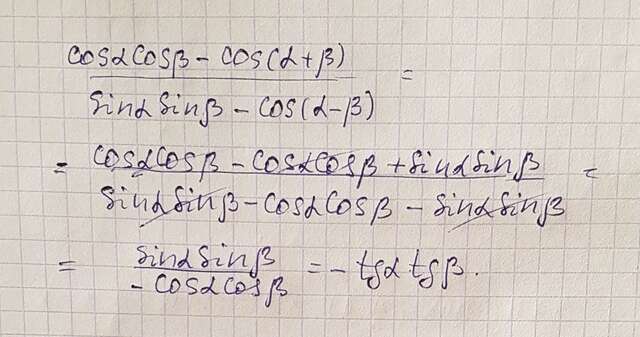 cosαcosβ - cos(α+β)
=
sinα sinβ - cos(α-β)
= cosαcosβ - cosαcosβ + sinαsinβ =
sinαsinβ - cosαcosβ - sinαsinβ
= sinαsinβ = -tgα tgβ.
-cosαcosβ